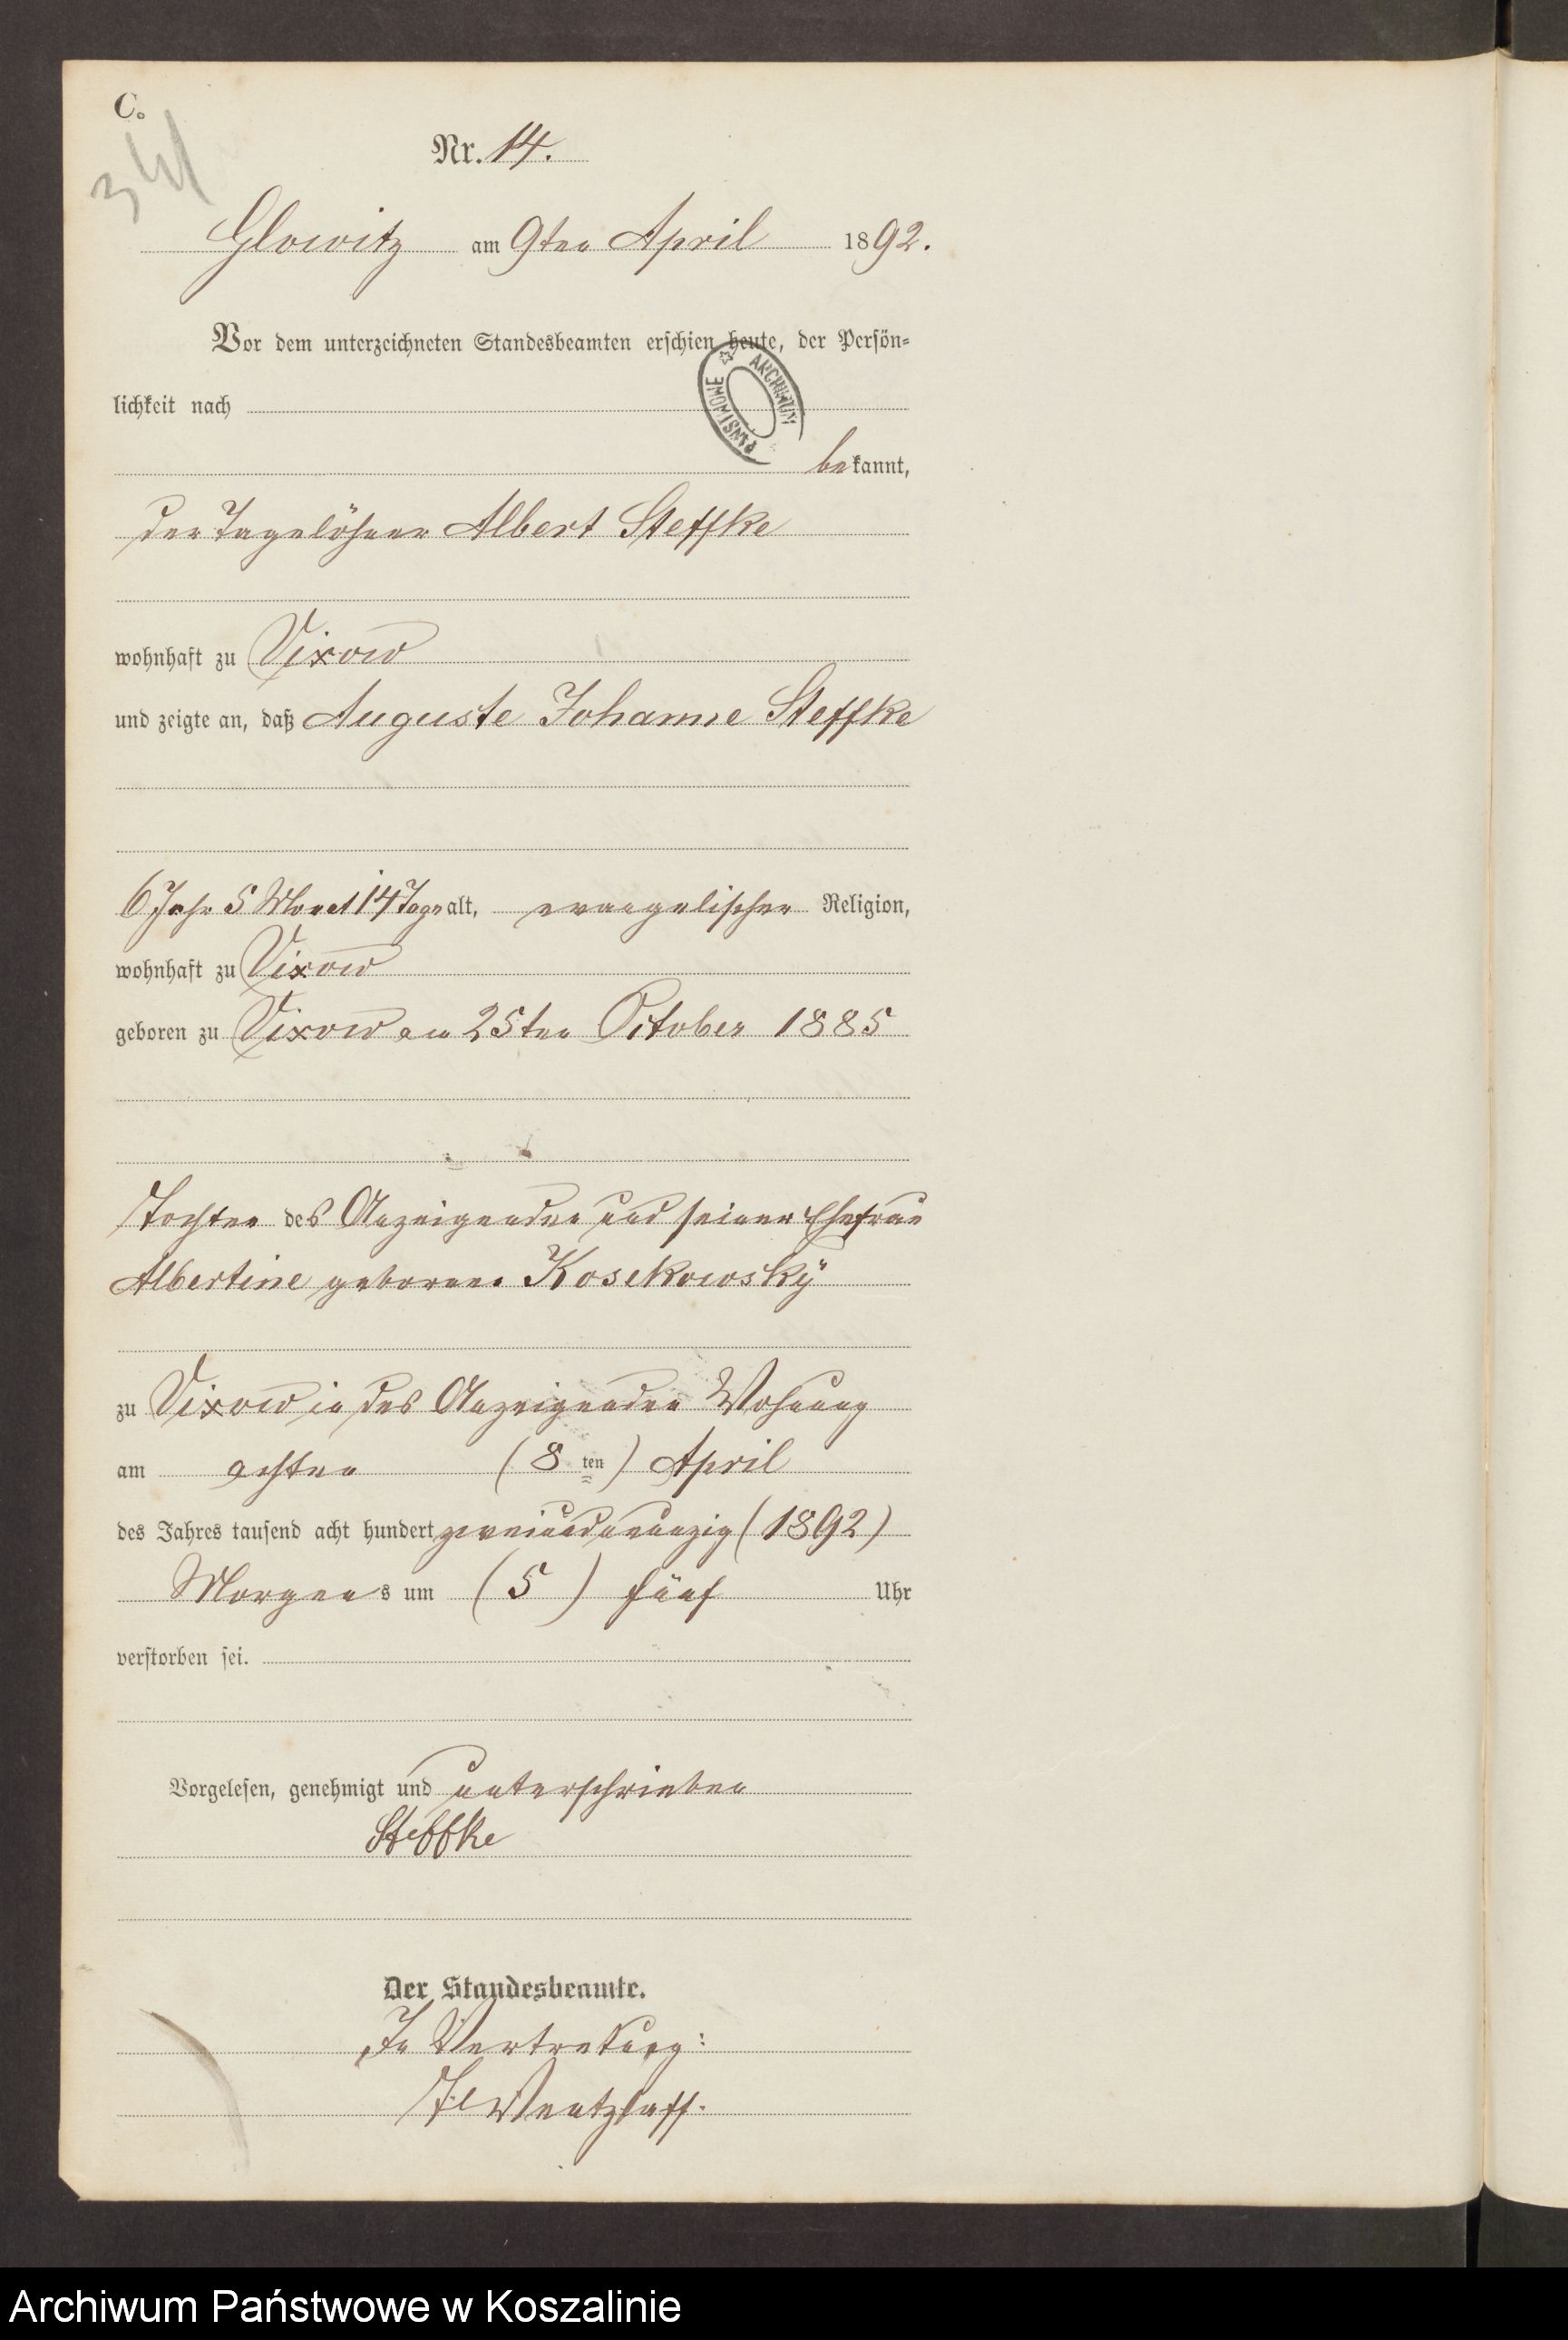 C.
34
Nr. 14.
Glowitz am 9ten April 1892.
Vor dem unterzeichneten Standesbeamten erschien heute, der Persön-
lichkeit nach
ARCHIWUM PAŃSTWOWE
bekannt,
der Tagelöhner Albert Steffke
wohnhaft zu Vixow
und zeigte an, daß Auguste Johanne Steffke
6 Jahr 5 Monat 14 Tage alt, evangelischer Religion,
wohnhaft zu Vixow
geboren zu Vixow am 25ten October 1885
Tochter des Anzeigenden und seiner Ehefrau
Albertine geborene Kosekowsky
zu Vixow in des Anzeigenden Wohnung
am achten (8ten) April
des Jahres tausend acht hundert zweiundneunzig (1892)
Morgens um (5) fünf Uhr
verstorben sei.
Vorgelesen, genehmigt und unterschrieben
Steffke
Der Standesbeamte.
In Vertretung:
Wentzlaff.
Archiwum Państwowe w Koszalinie